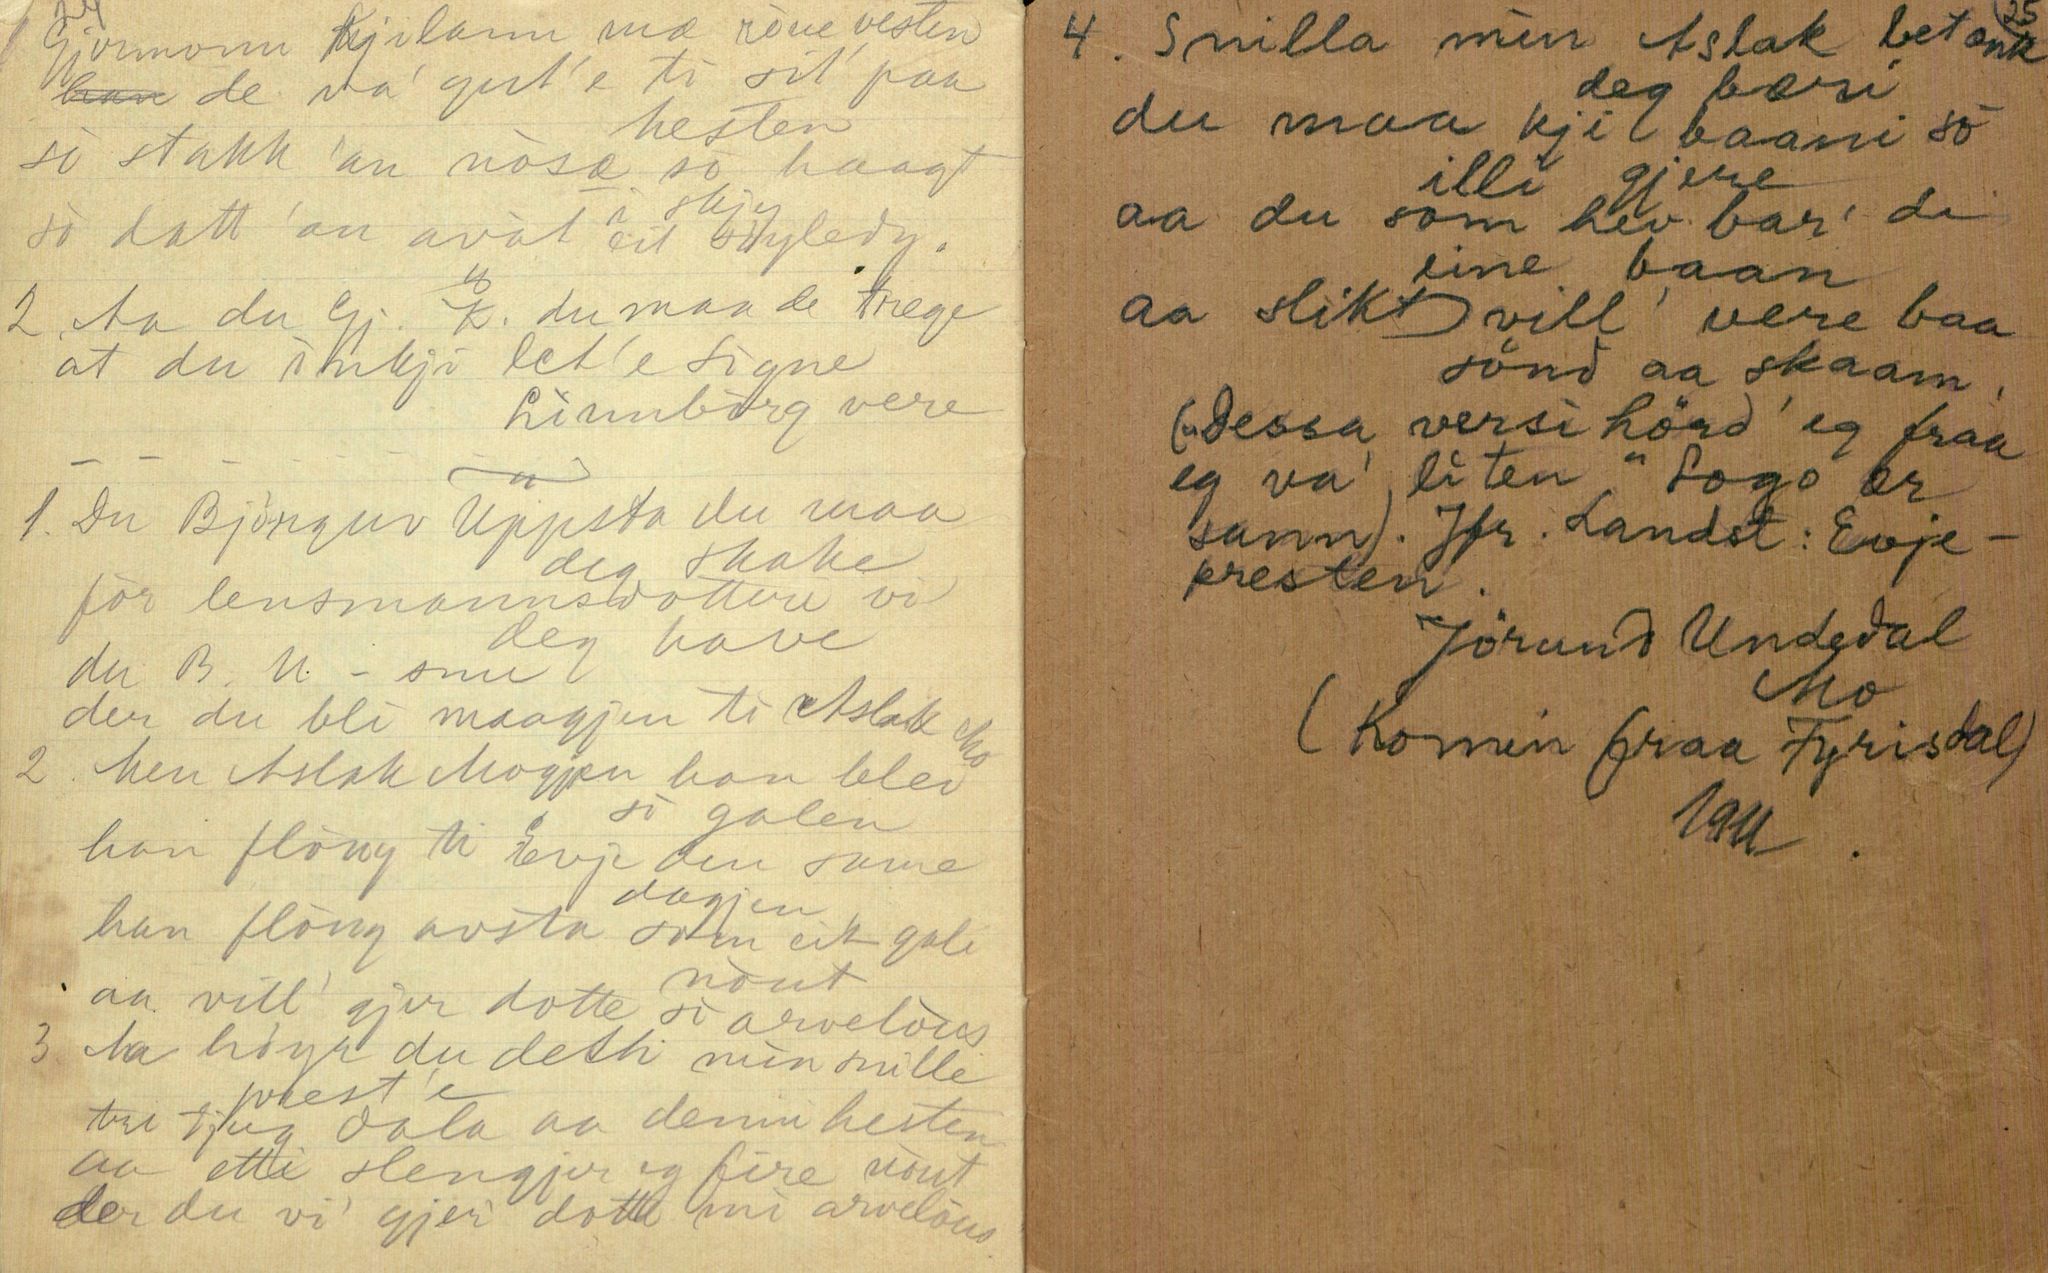 1 Gjermonn Kjilann mæ röue vesten
han de va' gut'e ti sit' paa
hesten
so stakk 'an nosæ so haagt
i sky
so datt 'an avat i eit
2 Aa du Gj. K. du maa de trege
at du inkji let'e Signe
Linnborg vere
1. Du Bjørguv Uppsta du maa
deg skake
för lensmannsdottere vi
deg have
du B. U. - snu
der du bli maagjen ti Aslak Mo
2. Men Aslak Mogjen han blei
so galen
han flöug ti Evje den same
dagjen
han flöug avsta som eit gali
nòut
aa vill' gjer dotte si arvelòus
3 Aa höyr du detti min snille
prest'e
tri tjug dala aa denni hesten
aa etti slengjer eg fire nòut
der du vi' gjer' dotte mi arvelòus
25
4. Snilla min Aslak betank
deg bæri
du maa kji baani so
illi gjere
aa du som hev bar' di
eine baan
aa slikt vill' vere baa
sönd aa skaam.
(Dessa versi hörd' eg fraa
eg va' liten "Sogo er
sann). Jfr. Landst: Evje-
presten.
Jörund Undedal
Mo
(Komin fraa Fyrisdal)
1911.